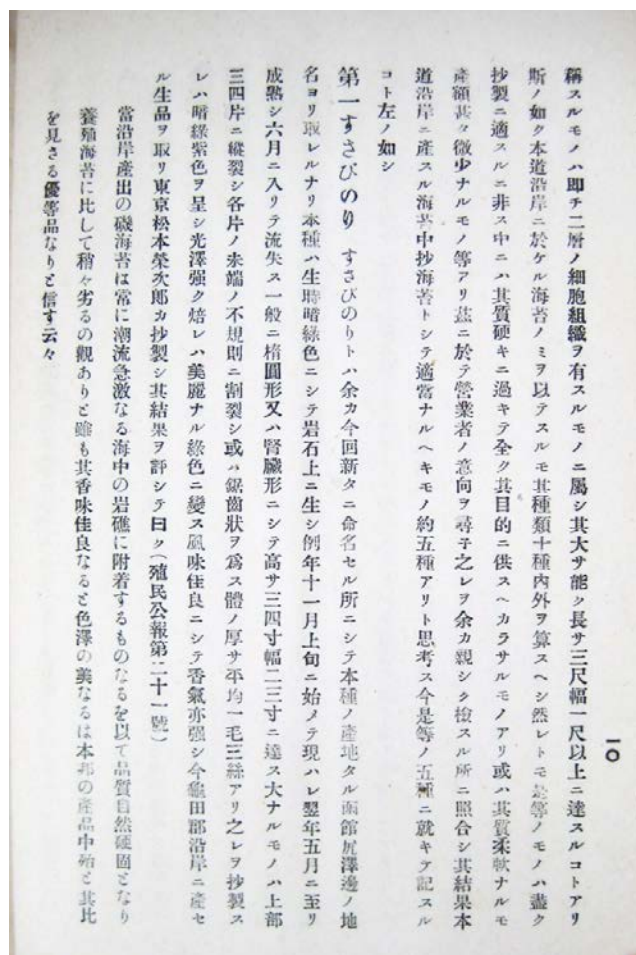 一〇
稱スルモノハ即チ二層ノ細胞組織ヲ有スルモノニ屬シ其大サ能ク長サ三尺幅一尺以上ニ達スルコトアリ
斯ノ如ク本道沿岸ニ於ケル海苔ノミヲ以テスルモ其種類十種內外ヲ算スヘシ然レトモ是等ノモノハ盡ク
抄製ニ適スルニ非ス中ニハ其質硬キニ過キテ全ク其目的ニ供スヘカラサルモノアリ或ハ其質柔軟ナルモ
產額甚タ微少ナルモノ等アリ茲ニ於テ營業者ノ意向ヲ尋子之レヲ余カ親シク檢スル所ニ照合シ其結果本
道沿岸ニ產スル海苔中抄海苔トシテ適當ナルヘキモノ約五種アリト思考ス今是等ノ五種ニ就キテ記スル
コト左ノ如シ
第一すさびのり すさびのりトハ余カ今回新タニ命名セル所ニシテ本種ノ產地タル函館尻澤邊ノ地
名ヨリ取レルナリ本種ハ生時暗綠色ニシテ岩石上ニ生シ例年十一月上旬ニ始メテ現ハレ翌年五月ニ至リ
成熟シ六月ニ入リテ流失ス一般ニ橢圓形又ハ腎臟形ニシテ高サ三四寸幅二三寸ニ達ス大ナルモノハ上部
三四片ニ縱裂シ各片ノ末端ノ不規則ニ割裂シ或ハ鋸齒狀ヲ爲ス體ノ厚サ平均一毛三絲アリ之レヲ抄製ス
レハ暗綠紫色ヲ呈シ光澤强ク焙レハ美麗ナル綠色ニ變ス風味佳良ニシテ香氣亦强シ今龜田郡沿岸ニ產セ
ル生品ヲ取リ東京松本榮次郞カ抄製シ其結果ヲ評シテ曰ク（殖民公報第二十一號）
當沿岸產出の磯海苔は常に潮流急激なる海中の岩礁に附着するものなるを以て品質自然硬固となり
養殖海苔に比して稍々劣るの觀ありと雖も其香味佳良なると色澤の美なるは本邦の產品中殆と其比
を見さる優等品なりと信す云々